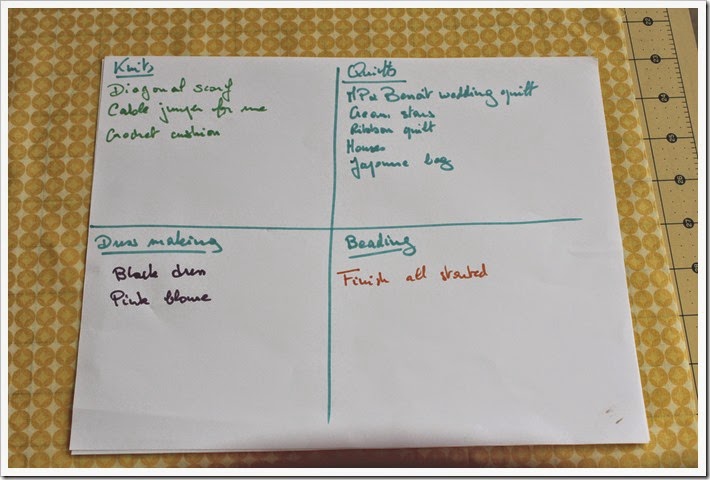 Knits
Diagonal scarf
Cable jumper for me
Crochet cushion
Quilts
MP & Benoit wedding quilt
Cream stars
Ribbon quilt
Houses
Japonese bag
Dress making
Black dress
Pink blouse
Beading
Finish all started